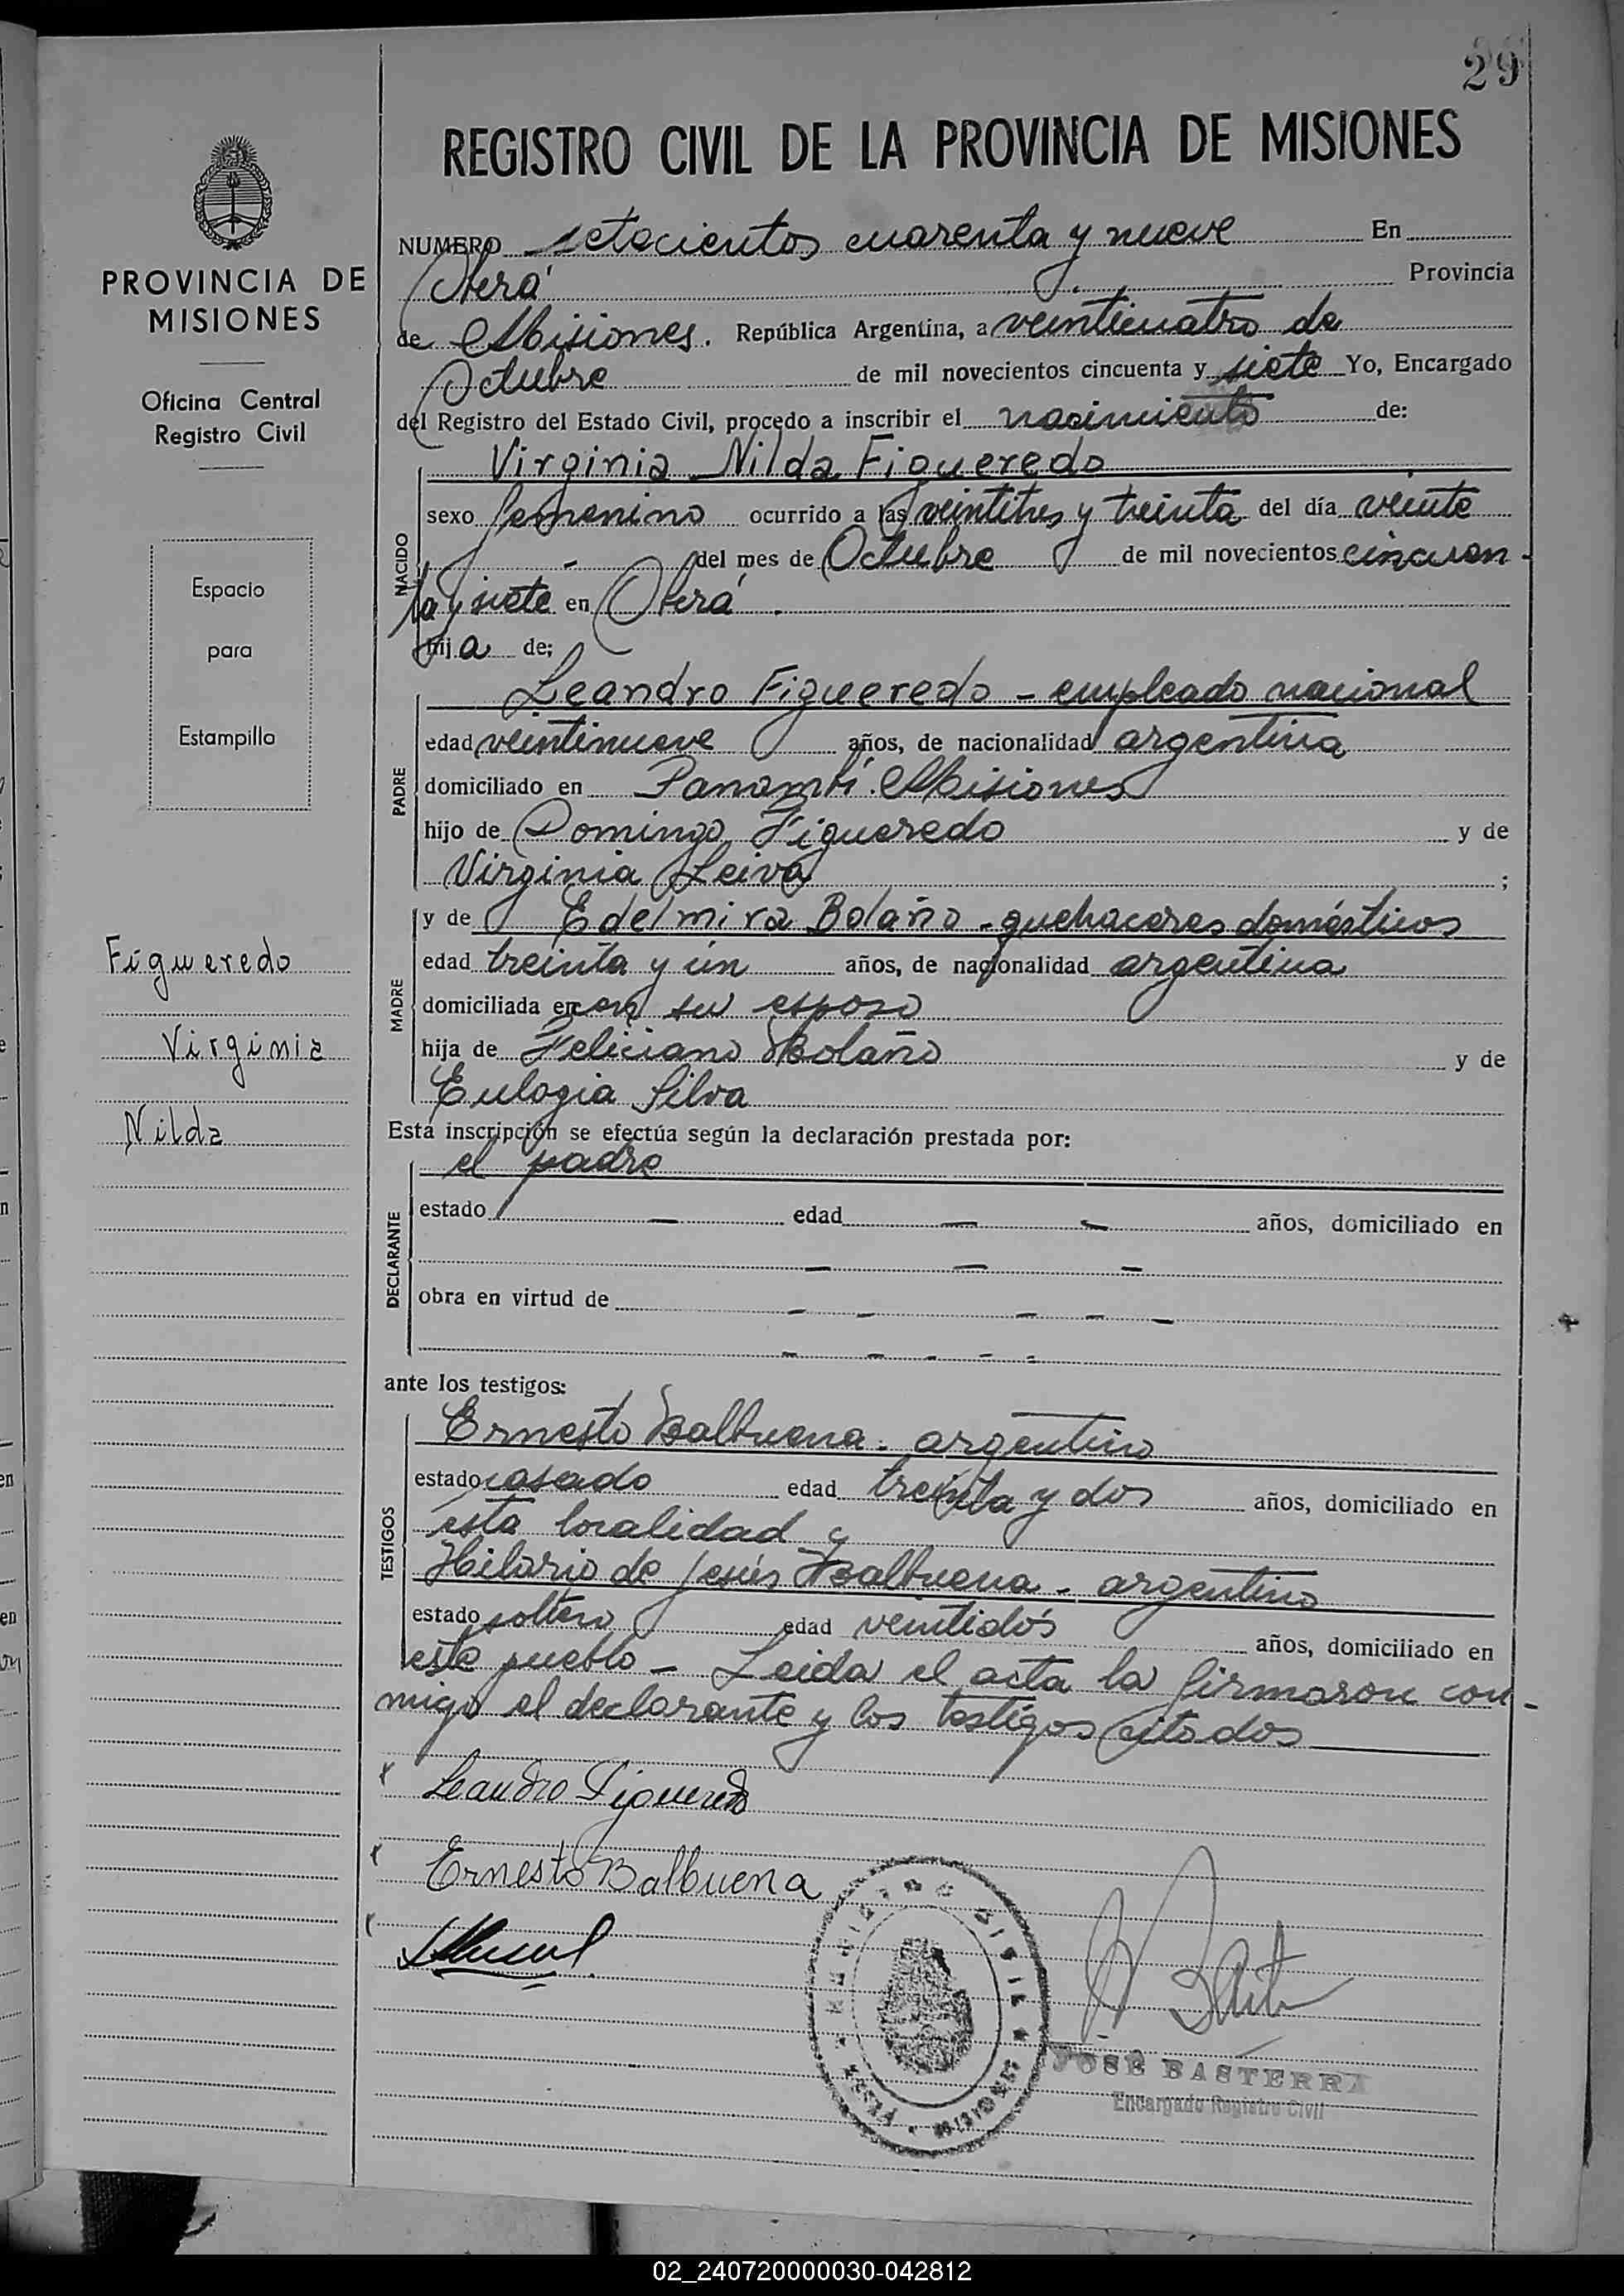 29
REGISTRO CIVIL DE LA PROVINCIA DE MISIONES
NUMERO setecientos cuarenta y nueve En
Oberá Provincia
de Misiones. República Argentina, a veinticuatro de
Octubre de mil novecientos cincuenta y siete Yo, Encargado
del Registro del Estado Civil, procedo a inscribir el nacimiento de:
Virginia Nilda Figueredo
NACIDO
sexo femenino ocurrido a las veintitres y treinta del día veinte
- del mes de Octubre de mil novecientos cincuen-
ta y siete en Oberá.
hija de;
PADRE
Leandro Figueredo - empleado nacional
edad veintinueve años, de nacionalidad argentina
domiciliado en Panambí. Misiones
hijo de Domingo Figueredo y de
Virginia Leiva ;
MADRE
y de Edelmira Bolaño - quehaceres domésticos
edad treinta y un años, de nacionalidad argentina
domiciliada en con su esposo
hija de Feliciano Bolaño y de
Eulogia Silva
Esta inscripción se efectúa según la declaración prestada por:
DECLARANTE
el padre
estado - edad - - años, domiciliado en
- - -
obra en virtud de - - - - -
- - - - -
ante los testigos:
TESTIGOS
Ernesto Balbuena. argentino
estado casado edad treinta y dos años, domiciliado en
esta localidad y
Hilario de Jesús Balbuena - argentino
estado soltero edad veintidós años, domiciliado en
este pueblo - Leida el acta la firmaron con-
migo el declarante y los testigos citados
Leandro Figueredo
Ernesto Balbuena
REGISTRO CIVIL
MISIONES
JOSÉ BASTERRA
Encargado Registro Civil
PROVINCIA DE
MISIONES
Oficina Central
Registro Civil
Espacio
para
Estampilla
Figueredo
Virginia
Nilda
02_240720000030-042812